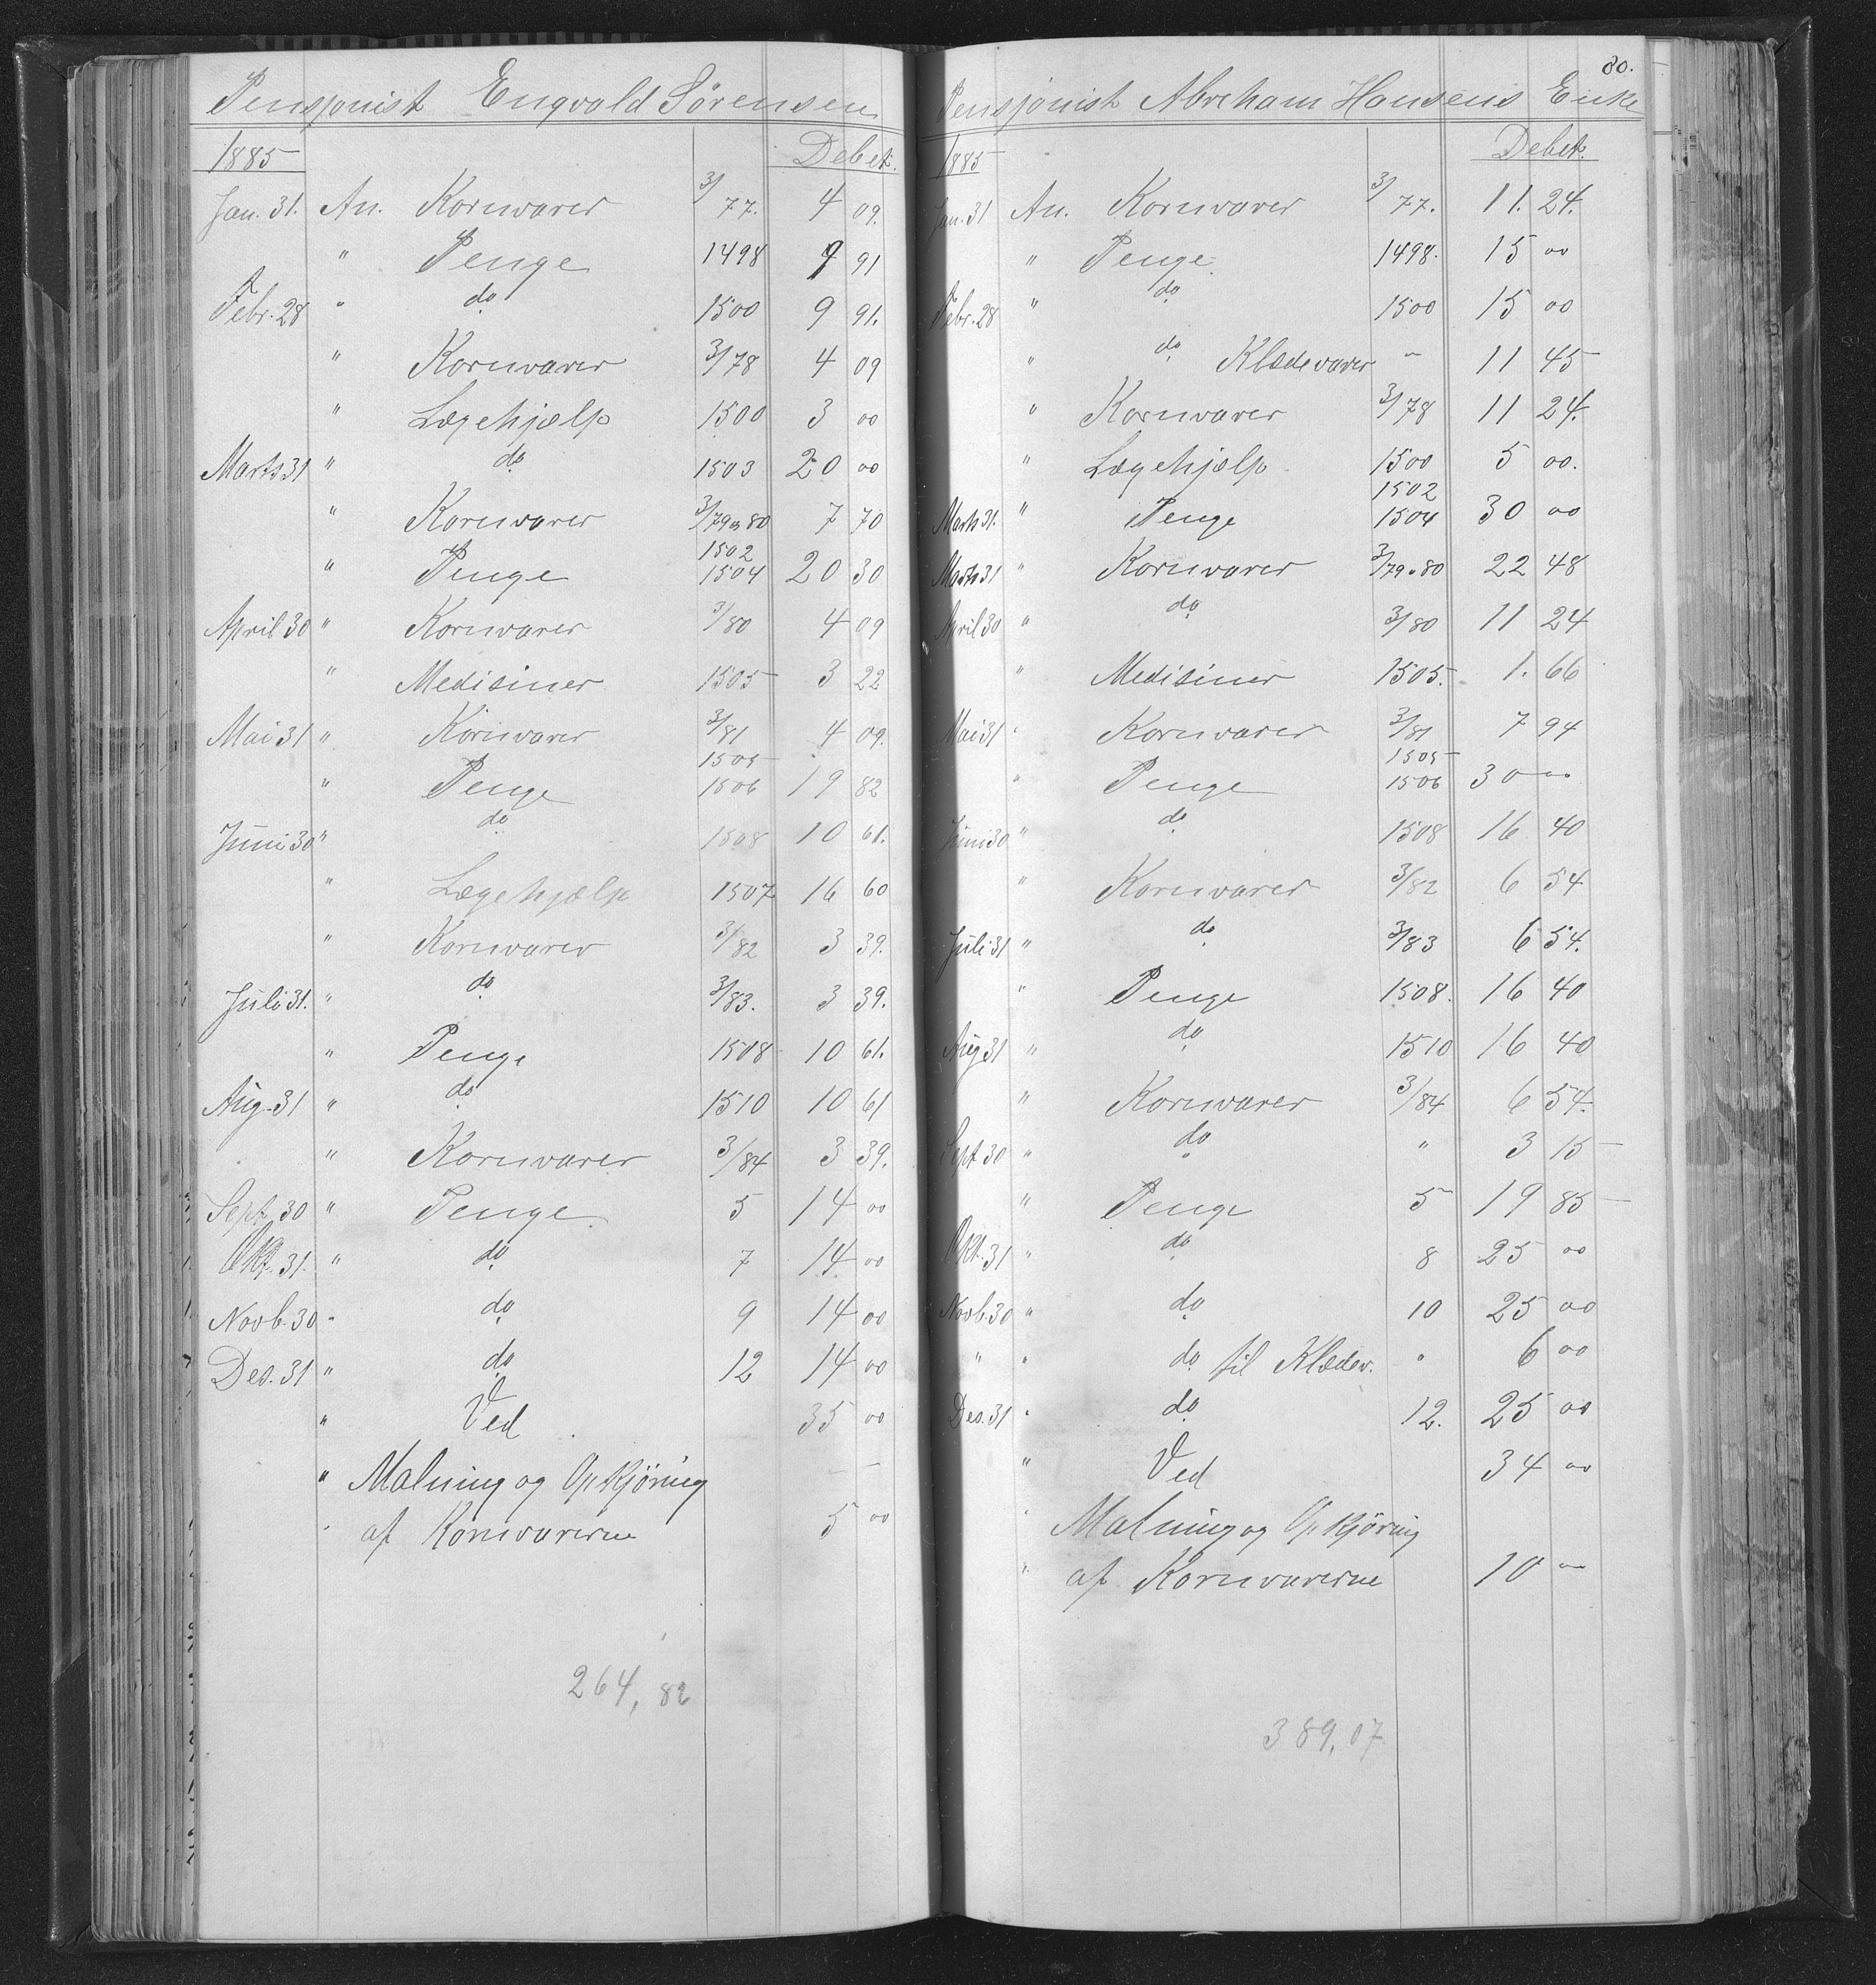 Pensjonist Engvald Sörensen
1885 Debet.
Jan. 31. An. Kornvarer 3/77. 4 09.
" Penge 1498 9 91
Febr. 28 " do 1500 9 91.
" Kornvarer 3/78 4 09
" Lægehjælp 1500 3 00
Marts 31 " do 1503 20 00
" Kornvarer 3/79 & 80 7 70
" Penge 1502 1504 20 30
April 30 " Kornvarer 3/80 4 09
" Medisiner 1505 3 22
Mai 31 " Kornvarer 3/81 4 09.
" Penge 1505 1506 19 82
Juni 30 " do 1508 10 61.
" Lægehjælp 1507 16 60
" Kornvarer 3/82 3 39.
Juli 31. " do 3/83. 3 39.
" Penge 1508 10 61.
Aug. 31 " do 1510 10 61
" Kornvarer 3/84 3 39.
Sept. 30 " Penge 5 14 00
Okt. 31. " do 7 14. 00
Novb. 30 " do 9 14 00
Des. 31 " do 12 14 00
" Ved 35 00
" Malning og Opkjöring
af Kornvarerne 5 00
264,82
80.
Pensjonist Abraham Hansens Enke
1885 Debet.
Jan. 31 An. Kornvarer 3/77. 11. 24.
" Penge 1498. 15 00
Febr. 28 " do 1500 15 00
" do Klædevarer " 11 45
" Kornvarer 3/78 11 24.
" Lægehjælp 1500 5 00.
Marts 31. " Penge 1502 1504 30 00
Marts 31 " Kornvarer 3/79 & 80 22 48
April 30 " do 3/80 11 24
" Medisiner 1505. 1. 66
Mai 31 " Kornvarer 3/81 7 94
" Penge 1505 1506 30 00
Juni 30 " do 1508 16 40
" Kornvarer 3/82 6 54
Juli 31 " do 3/83 6 54.
" Penge 1508. 16 40
Aug 31 " do 1510 16 40
" Kornvarer 3/84 6 54.
Sept 30 " do " 3 15
" Penge 5 19 85
Okt. 31 " do 8 25 00
Novb. 30 " do 10 25 00
" " do til Klædev. " 6 00
Des. 31 " do 12. 25 00
" Ved 34 00
" Malning og Opkjöring
" af Kornvarerne 10 00
389,07